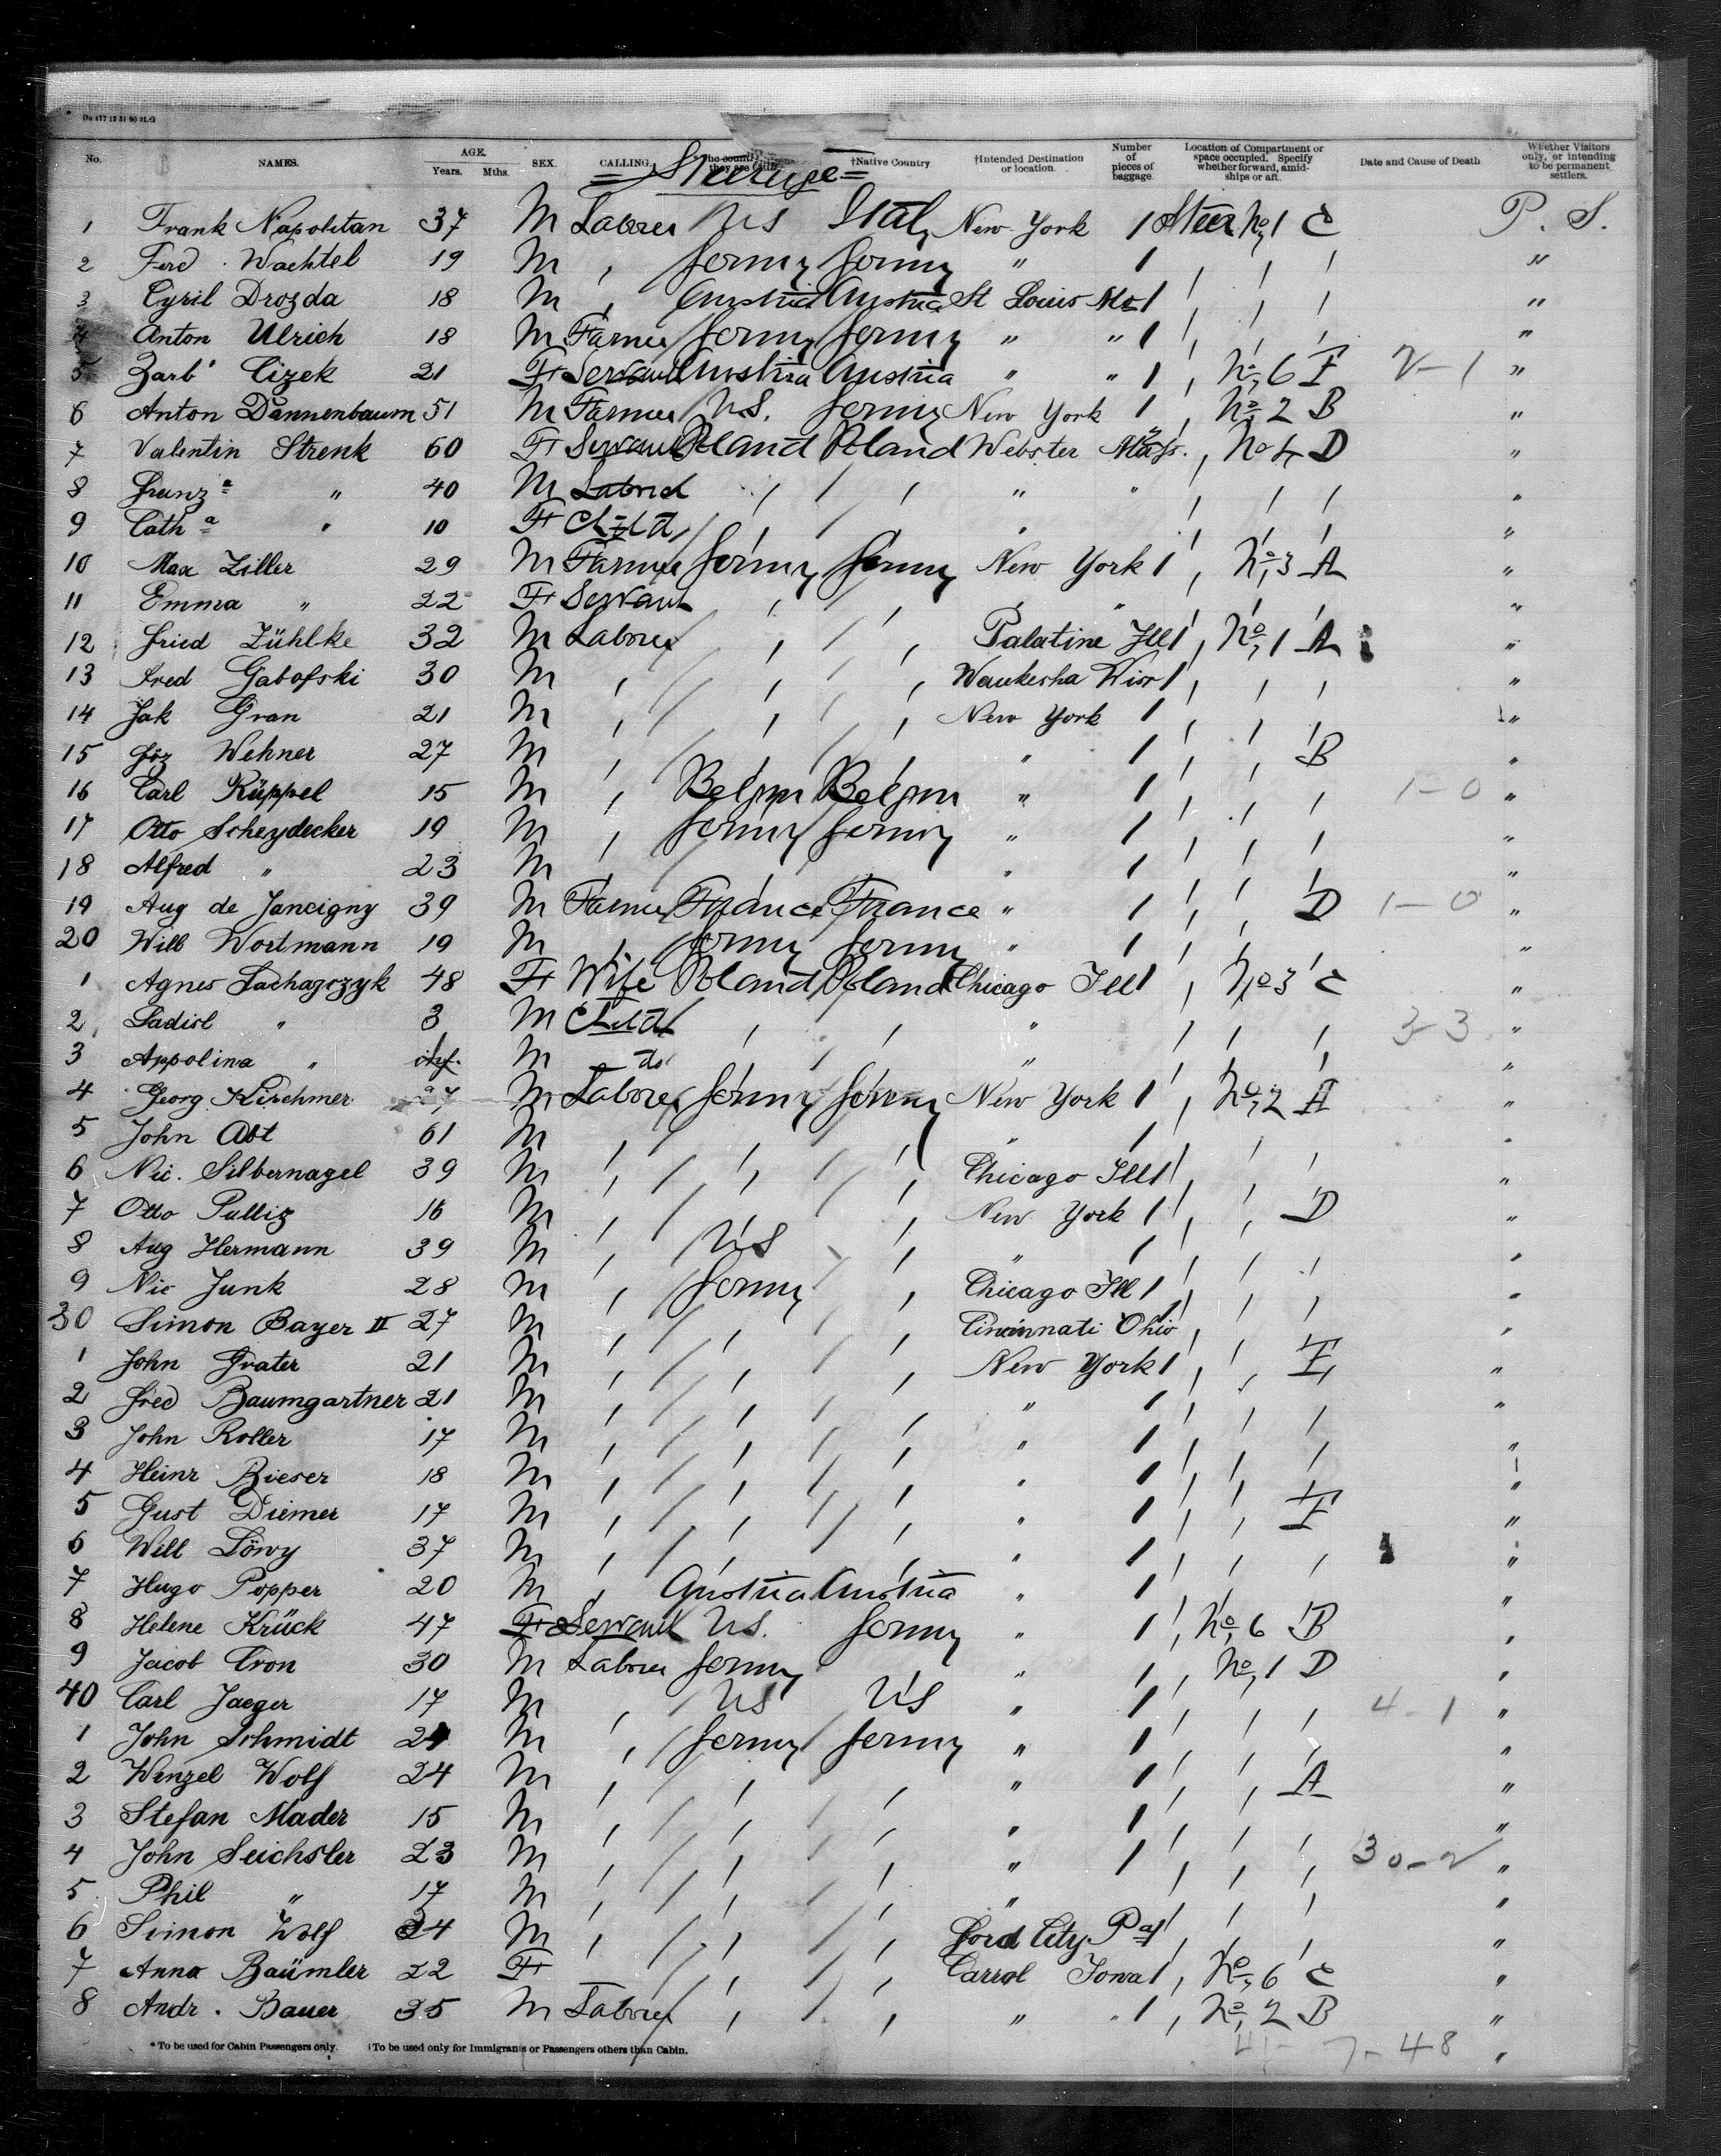 Do 477 12 31 90 H.G
No. NAMES. AGE. Years. Mths. SEX. CALLING. The country they are citizens †Native Country †Intended Destination or location. Number of pieces of baggage Location of Compartment or space occupied. Specify whether forward, amidships or aft. Date and Cause of Death Whether Visitors only, or intending to be permanent settlers.
= Steerage =
1 Frank Napolitan 37 M Laborer US Italy New York 1 Steer No 1 C P. S.
2 Ferd. Wachtel 19 M , Germy Germy " 1 "
3 Cyril Drozda 18 M , Austria Austria St Louis Mo 1 "
4 Anton Ulrich 18 M Farmer Germy Germy " " 1 "
5 Barb' Cizek 21 F Servant Austria Austria " " 1 , No 6 F 2-1 "
6 Anton Dannenbaum 51 M Farmer US. Germy New York 1 , No 2 B "
7 Valentin Strenk 60 F Servant Poland Poland Webster Mass. , No 4 D "
8 Franz a " 40 M Laborer , , " " "
9 Cath a " 10 F Child "
10 Max Ziller 29 M Farmer Germy Germy New York 1 , No 3 A "
11 Emma " 22 F Servant , , "
12 Fried Zühlke 32 M Laborer , , Palatine Ill 1 , No 1 A "
13 Fred Gabofski 30 M , , , Waukesha Wisc 1 "
14 Jak Gran 21 M , , , New York 1 "
15 Joz Wehner 27 M " 1 B "
16 Carl Rüppel 15 M , Belgm Belgm " 1 1-0 "
17 Otto Scheydecker 19 M , Germy Germy " 1 "
18 Alfred " 23 M " 1 "
19 Aug de Jancigny 39 M Farmer France France " 1 D 1-0 "
20 Will Wortmann 19 M , Germy Germy " 1 "
1 Agnes Lachazczyk 48 F Wife Poland Poland Chicago Ill 1 , No 3 C "
2 Ladisl " 3 M Child , , " 3-3 "
3 Appolina " inf. M do " "
4 Georg Kirchmer 27 M Laborer Germy Germy New York 1 , No 2 A "
5 John Abt 61 M " 1 "
6 Nic. Silbernagel 39 M , , , Chicago Ill 1 "
7 Otto Pullig 16 M , , New York 1 , , D "
8 Aug Hermann 39 M , US , " 1 "
9 Nic Junk 28 M , Germy , Chicago Ill 1 "
30 Simon Bayer II 27 M , , , Cincinnati Ohio 1 "
1 John Grater 21 M , , , New York 1 , , E "
2 Fred Baumgartner 21 M " 1 "
3 John Roller 17 M " 1 "
4 Heinr Bieser 18 M " 1 "
5 Gust Diemer 17 M " 1 F "
6 Will Löwy 37 M " 1 "
7 Hugo Popper 20 M , Austria Austria " 1 "
8 Helene Krück 47 F Servant US. Germy " 1 , No 6 B "
9 Jacob Cron 30 M Laborer Germy " 1 , No 1 D "
40 Carl Jaeger 17 M , US US " 1 4-1 "
1 John Schmidt 24 M , Germy Germy " 1 "
2 Wenzel Wolf 24 M " 1 , , A "
3 Stefan Mader 15 M " 1 "
4 John Seichsler 23 M " 1 30-2 "
5 Phil " 17 M " "
6 Simon Wolf 34 M , , , Ford City Pa 1 "
7 Anna Baümler 22 F , , Carrol Iowa 1 , No 6 C "
8 Andr. Bauer 35 M Laborer , , " " 1 , No 2 B "
41-7-48 "
*To be used for Cabin Passengers only. †To be used only for Immigrants or Passengers others than Cabin.